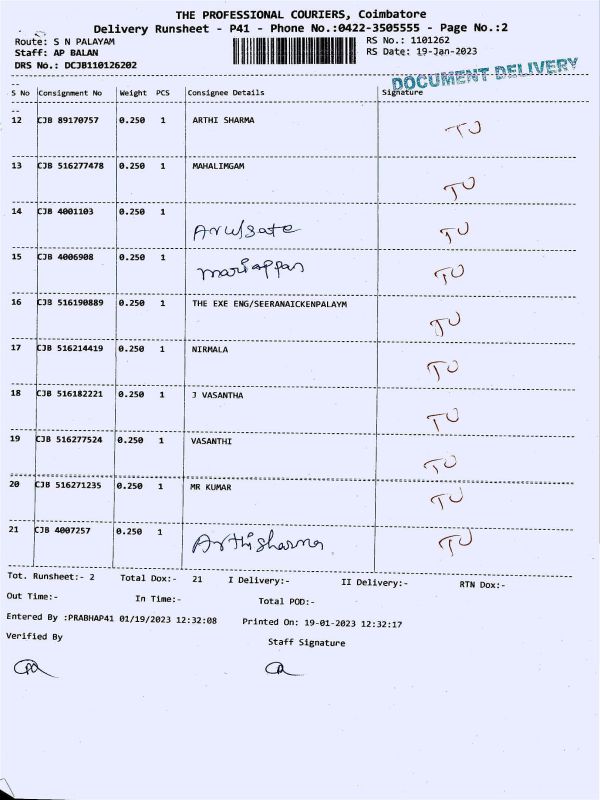 THE PROFESSIONAL COURIERS, Coimbatore
Delivery Runsheet - P41 - Phone No.:0422-3505555 - Page No.:2
Route: S N PALAYAM RS No.: 1101262
Staff: AP BALAN RS Date: 19-Jan-2023
DRS No.: DCJB110126202
DOCUMENT DELIVERY
S No Consignment No Weight PCS Consignee Details Signature
12 CJB 89170757 0.250 1 ARTHI SHARMA TU
13 CJB 516277478 0.250 1 MAHALIMGAM TU
14 CJB 4001103 0.250 1 TU
15 CJB 4006908 0.250 1 mariappan TU
16 CJB 516190889 0.250 1 THE EXE ENG/SEERANAICKENPALAYM TU
17 CJB 516214419 0.250 1 NIRMALA TU
18 CJB 516182221 0.250 1 J VASANTHA TU
19 CJB 516277524 0.250 1 VASANTHI TU
20 CJB 516271235 0.250 1 MR KUMAR TU
21 CJB 4007257 0.250 1 Arthisharma TU
Tot. Runsheet:- 2 Total Dox:- 21 I Delivery:- II Delivery:- RTN Dox:-
Out Time:- In Time:- Total POD:-
Entered By :PRABHAP41 01/19/2023 12:32:08 Printed On: 19-01-2023 12:32:17
Verified By Staff Signature